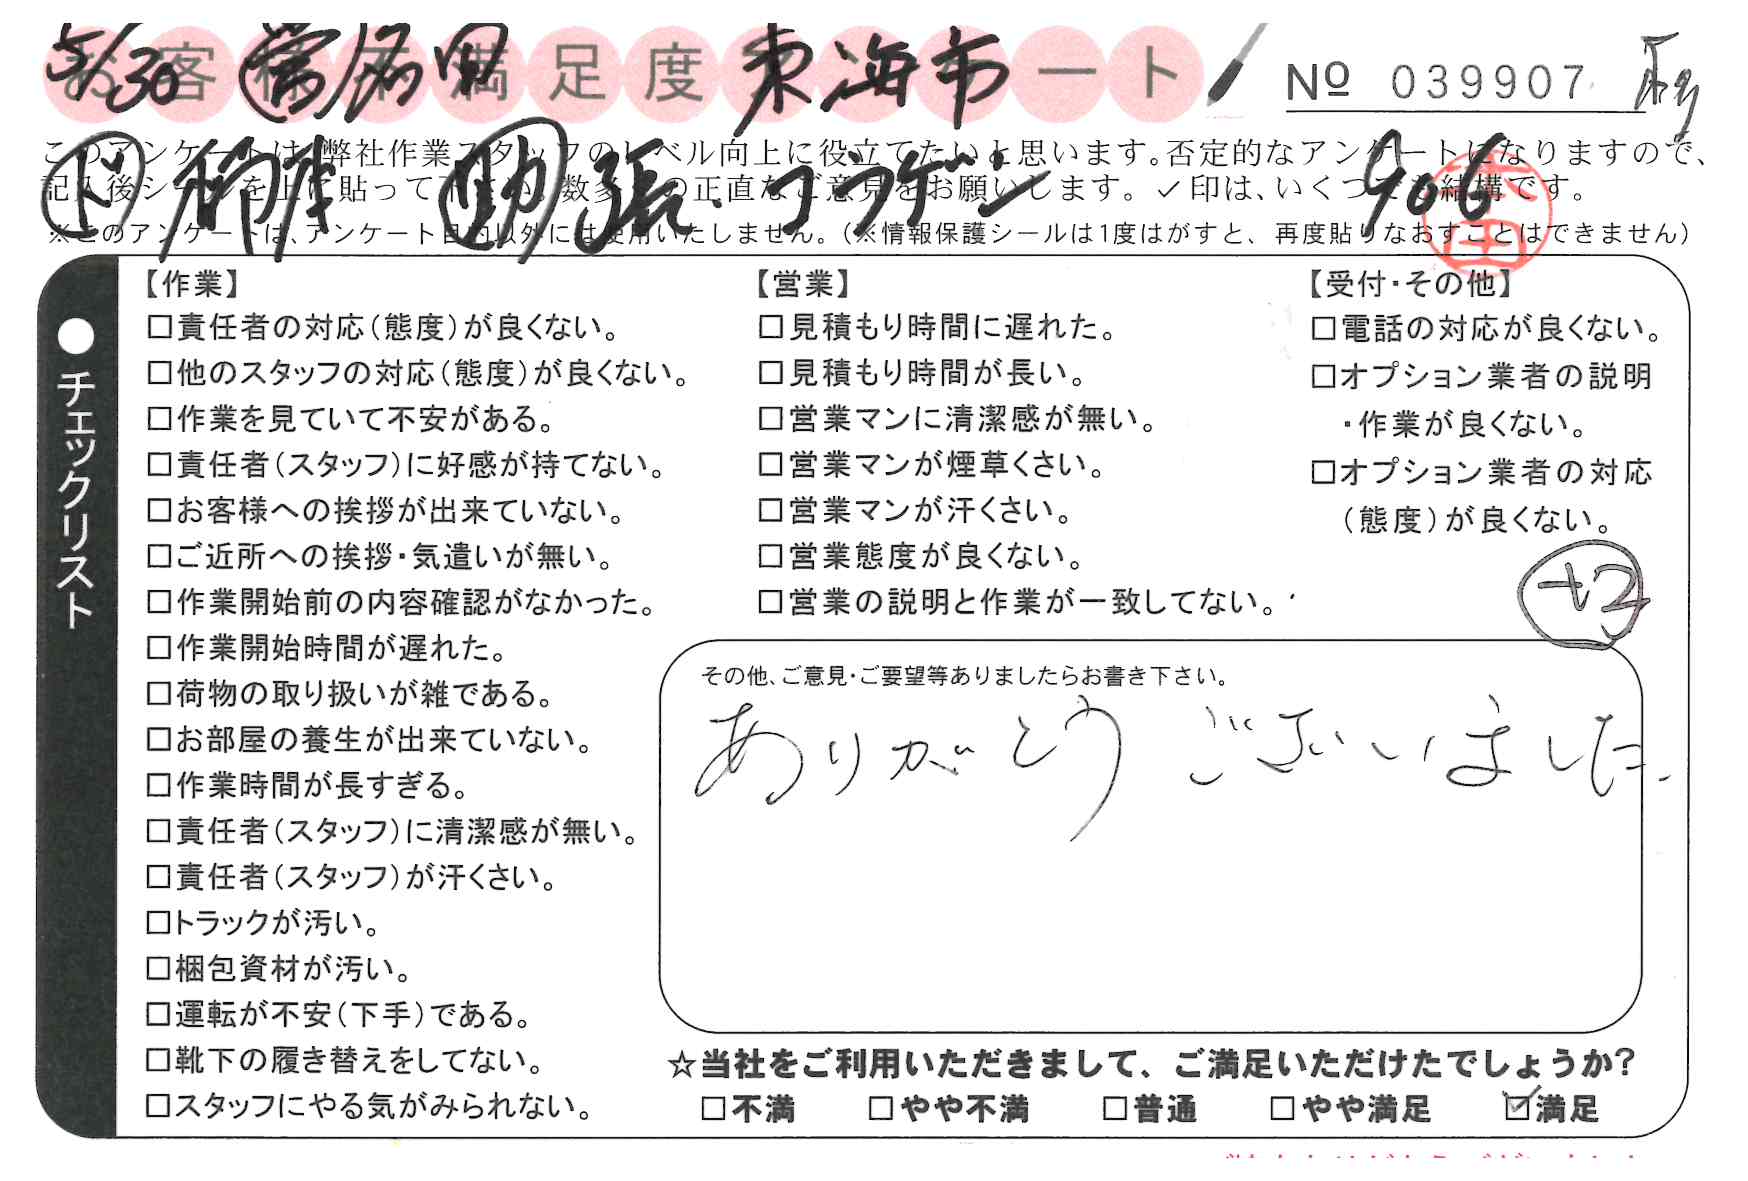 5/30 営 名田 東海市
お客様不満足度アンケート
№ 039907
このアンケートは、弊社作業スタッフのレベル向上に役立てたいと思います。否定的なアンケートになりますので、
記入後シールを上に貼って下さい。数多くの正直なご意見をお願いします。✓印は、いくつでも結構です。
ド 助 張・コラゲン 906
※このアンケートは、アンケート目的以外には使用いたしません。（※情報保護シールは1度はがすと、再度貼りなおすことはできません）
●チェックリスト
【作業】
□責任者の対応（態度）が良くない。
□他のスタッフの対応（態度）が良くない。
□作業を見ていて不安がある。
□責任者（スタッフ）に好感が持てない。
□お客様への挨拶が出来ていない。
□ご近所への挨拶・気遣いが無い。
□作業開始前の内容確認がなかった。
□作業開始時間が遅れた。
□荷物の取り扱いが雑である。
□お部屋の養生が出来ていない。
□作業時間が長すぎる。
□責任者（スタッフ）に清潔感が無い。
□責任者（スタッフ）が汗くさい。
□トラックが汚い。
□梱包資材が汚い。
□運転が不安（下手）である。
□靴下の履き替えをしてない。
□スタッフにやる気がみられない。
【営業】
□見積もり時間に遅れた。
□見積もり時間が長い。
□営業マンに清潔感が無い。
□営業マンが煙草くさい。
□営業マンが汗くさい。
□営業態度が良くない。
□営業の説明と作業が一致してない。
【受付・その他】
□電話の対応が良くない。
□オプション業者の説明
・作業が良くない。
□オプション業者の対応
（態度）が良くない。
+2
その他、ご意見・ご要望等ありましたらお書き下さい。
ありがとうございました.
☆当社をご利用いただきまして、ご満足いただけたでしょうか？
□不満 □やや不満 □普通 □やや満足 ☑満足